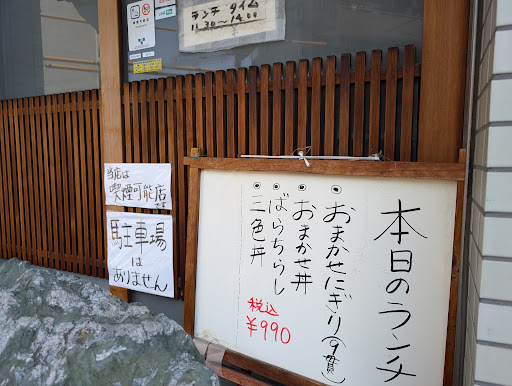 ランチ タイム
11.30～14.00
当店は
喫煙可能店
です
駐車場
は
ありません
本日のランチ
◉おまかせにぎり(9貫)
◉おまかせ丼
◉ばらちらし
◉三色丼
税込
¥990